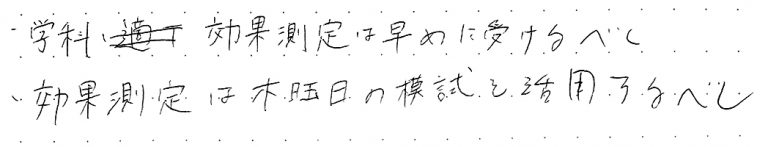 ・学科 効果測定は早めに受けるべし
・効果測定は木曜日の模試を活用するべし